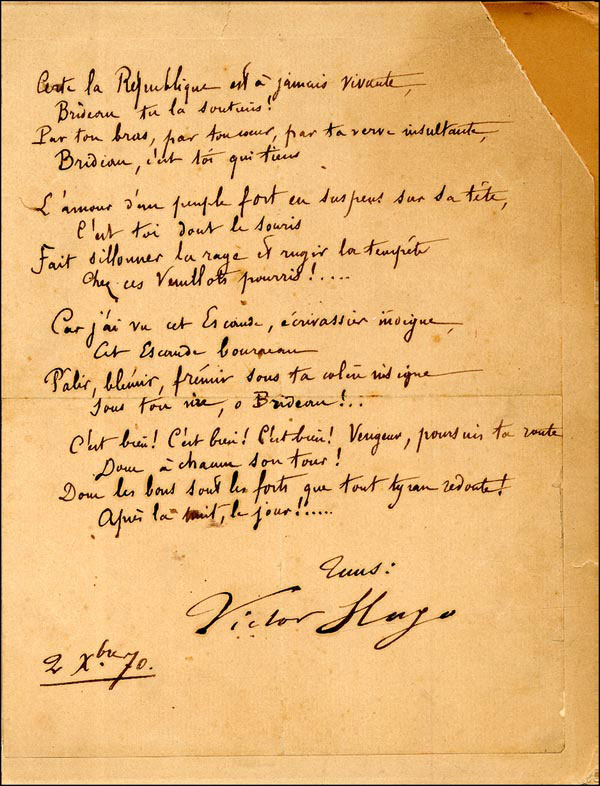 Certe la République est à jamais vivante,
Brideau tu la soutiens!
Par ton bras, par ton cœur, par ta verve insultante,
Brideau, c'est toi qui tiens
L'amour d'un peuple fort en suspens sur sa tête,
C'est toi dont le souris
Fait sillonner la rage et rugir la tempête
Chez ces Veuillots pourris!....
Car j'ai vu cet Escande, écrivassier indigne,
Cet Escande bourreau
Pâlir, blêmir, frémir sous ta colère insigne
Sous ton rire, o Brideau!..
C'est bien! C'est bien! C'est bien! Vengeur, poursuis ta route
Donc à chacun son tour!
Donc les bons sont les forts que tout tyran redoute!
Après la nuit, le jour!.....
Victor Hugo
2 Xbre 70.